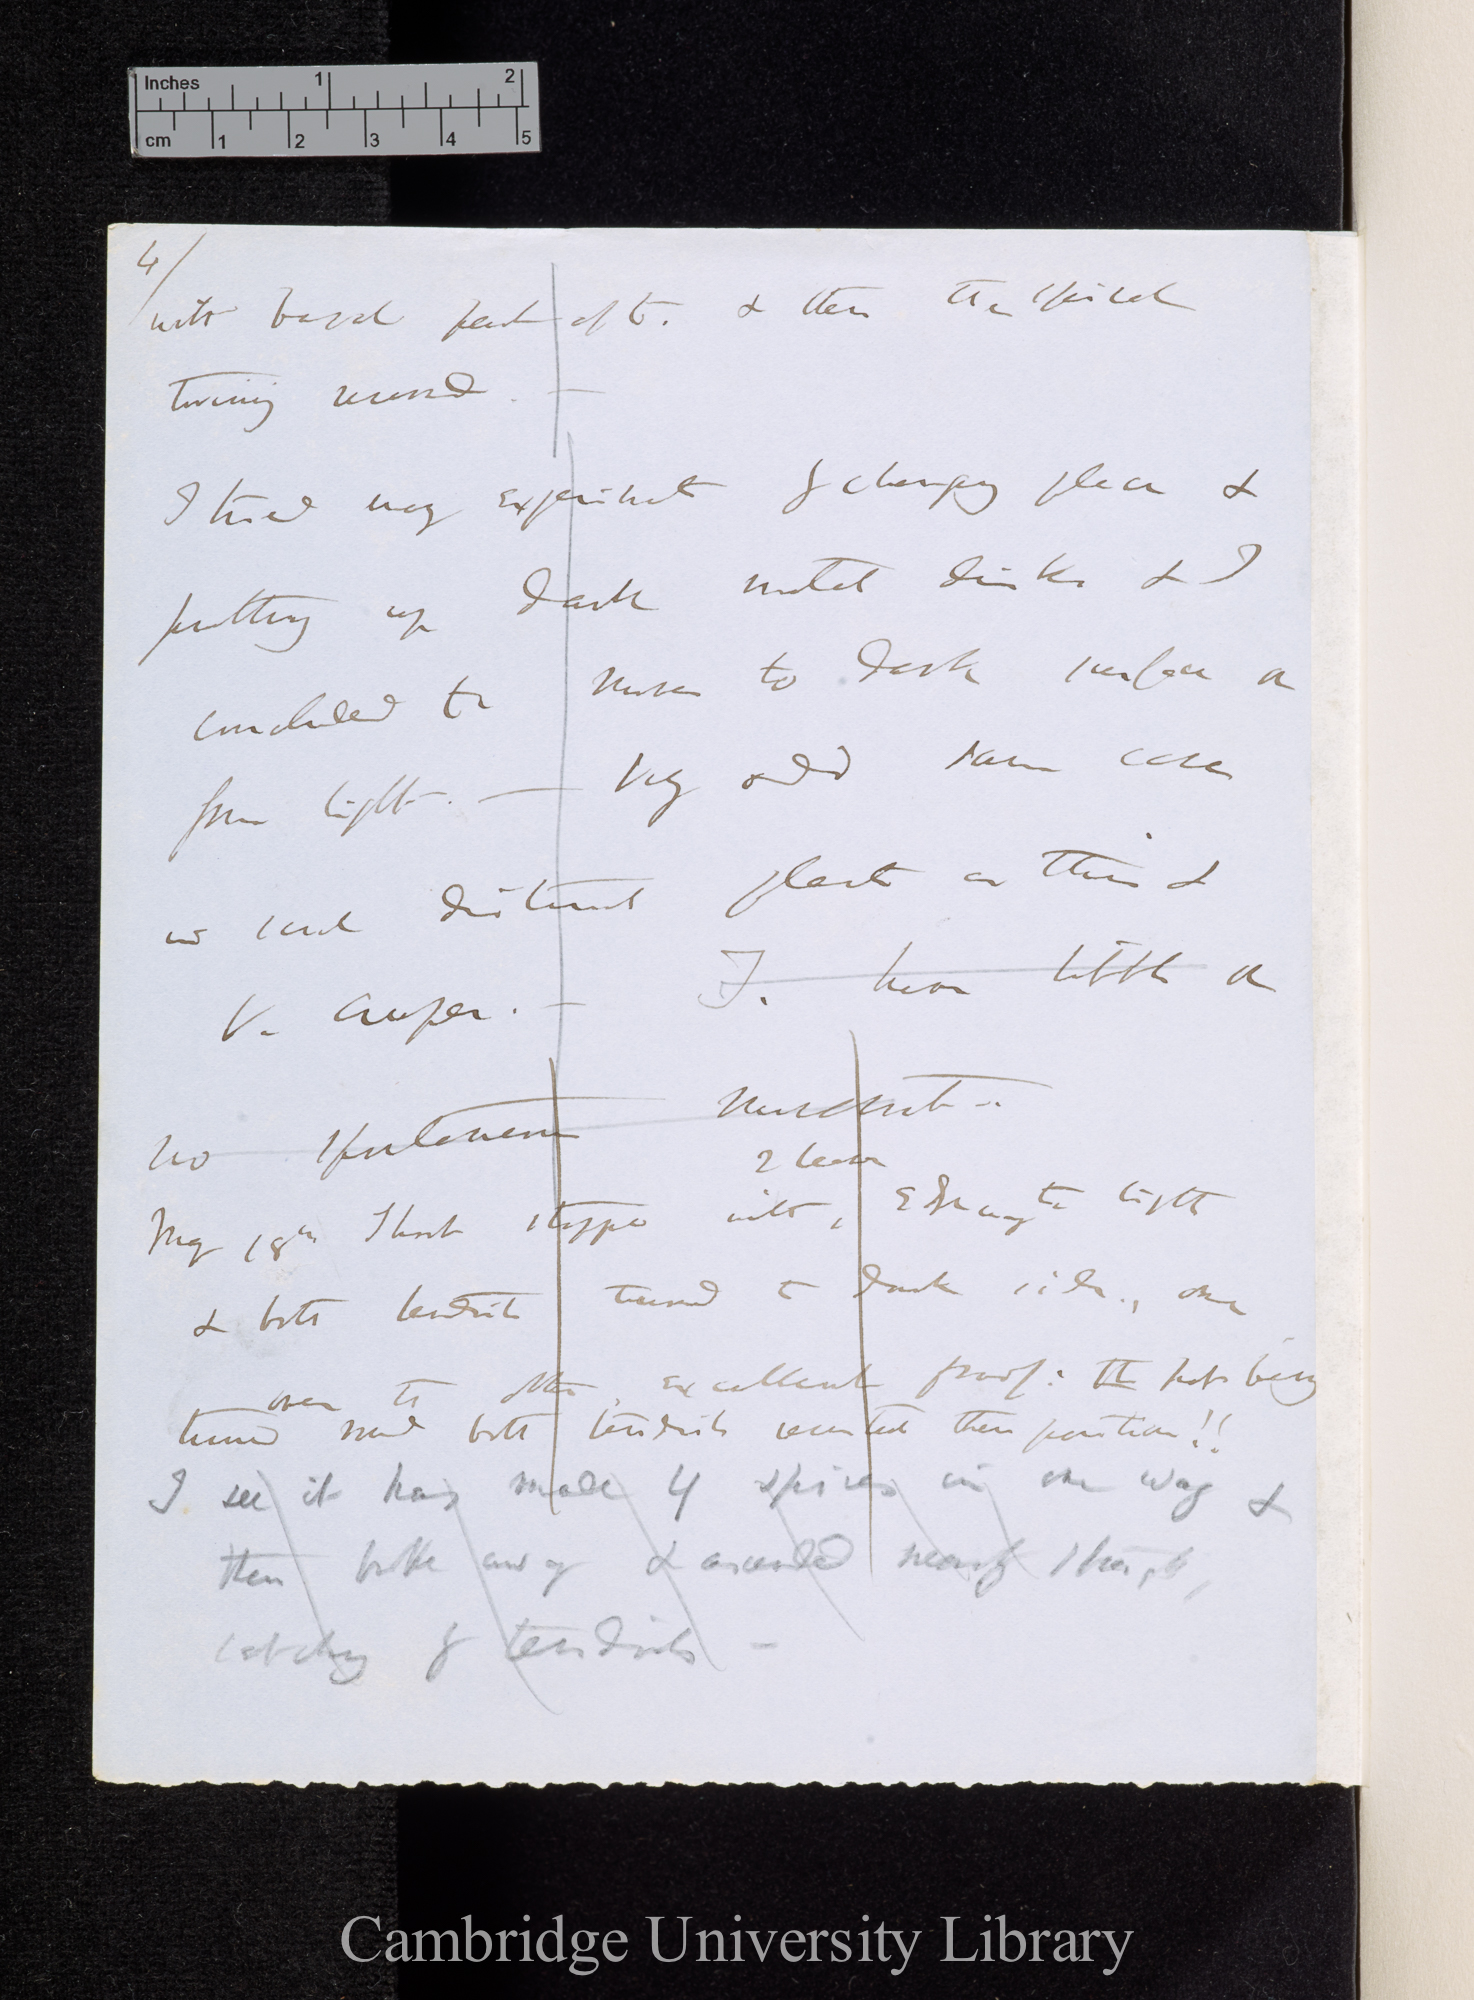 Inches 1 2
cm 1 2 3 4 5
4/
with basal part of t. & then the spiral
twining round. —
I tried many experiments of changing place &
putting up dark metal disks & I
concluded tr moves to dark surface or
from light. — Very odd same case
in such distinct plants as this &
V. Creeper. — T. have little or
no spontaneous movement.
2 hours
May 18th Shoot stopped with, Edways to light
& both tendrils turned to dark side., one
over to other, excellent proof: the pot being
turned round both tendrils reversed their position!!
I see it has made 4 spires in one way &
then broke away & ascended nearly straight,
catching by tendrils —
Cambridge University Library